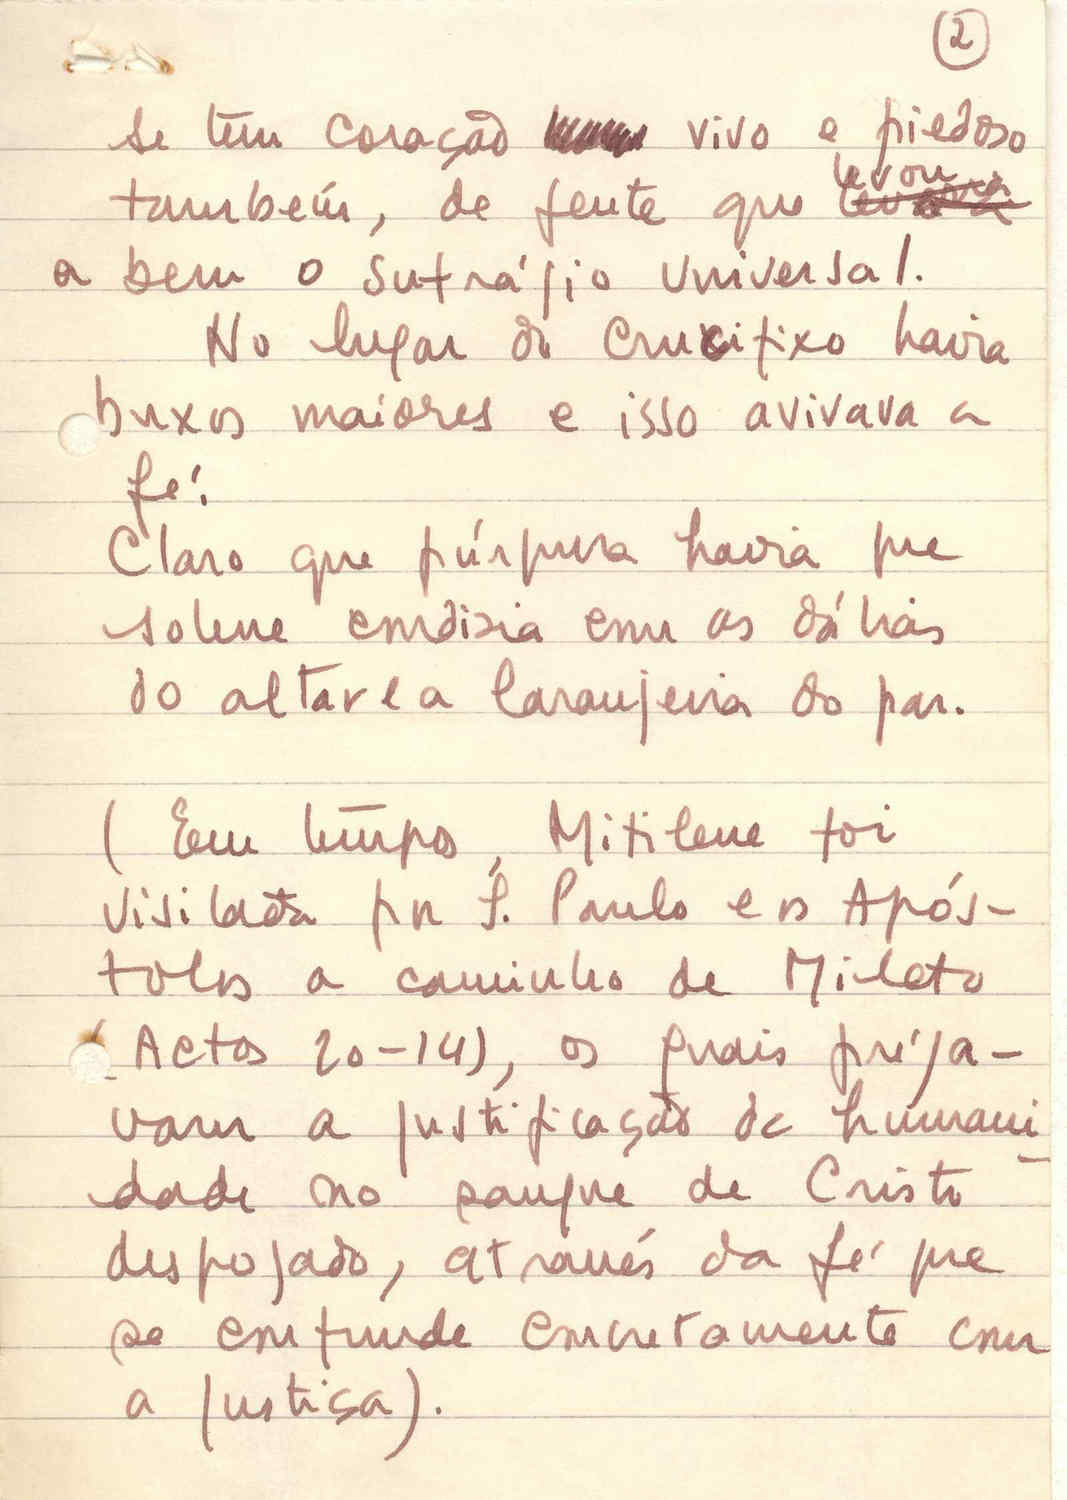 2
se têm coração vivo e piedoso
também, de gente que levou levava
a bem o sufrágio universal.
No lugar do crucifixo havia
buxos maiores e isso avivava a
fé.
Claro que púrpura havia que
solene condizia com as dálias
do altar e a laranjeira do par.
( Em tempo, Mitilene foi
visitada por S. Paulo e os Após-
tolos a caminho de Mileto
(Actos 20-14), os quais préga-
vam a justificação da humani
dade no sangue de Cristo
despojado, através da fé que
se confunde concretamente com
a justiça).